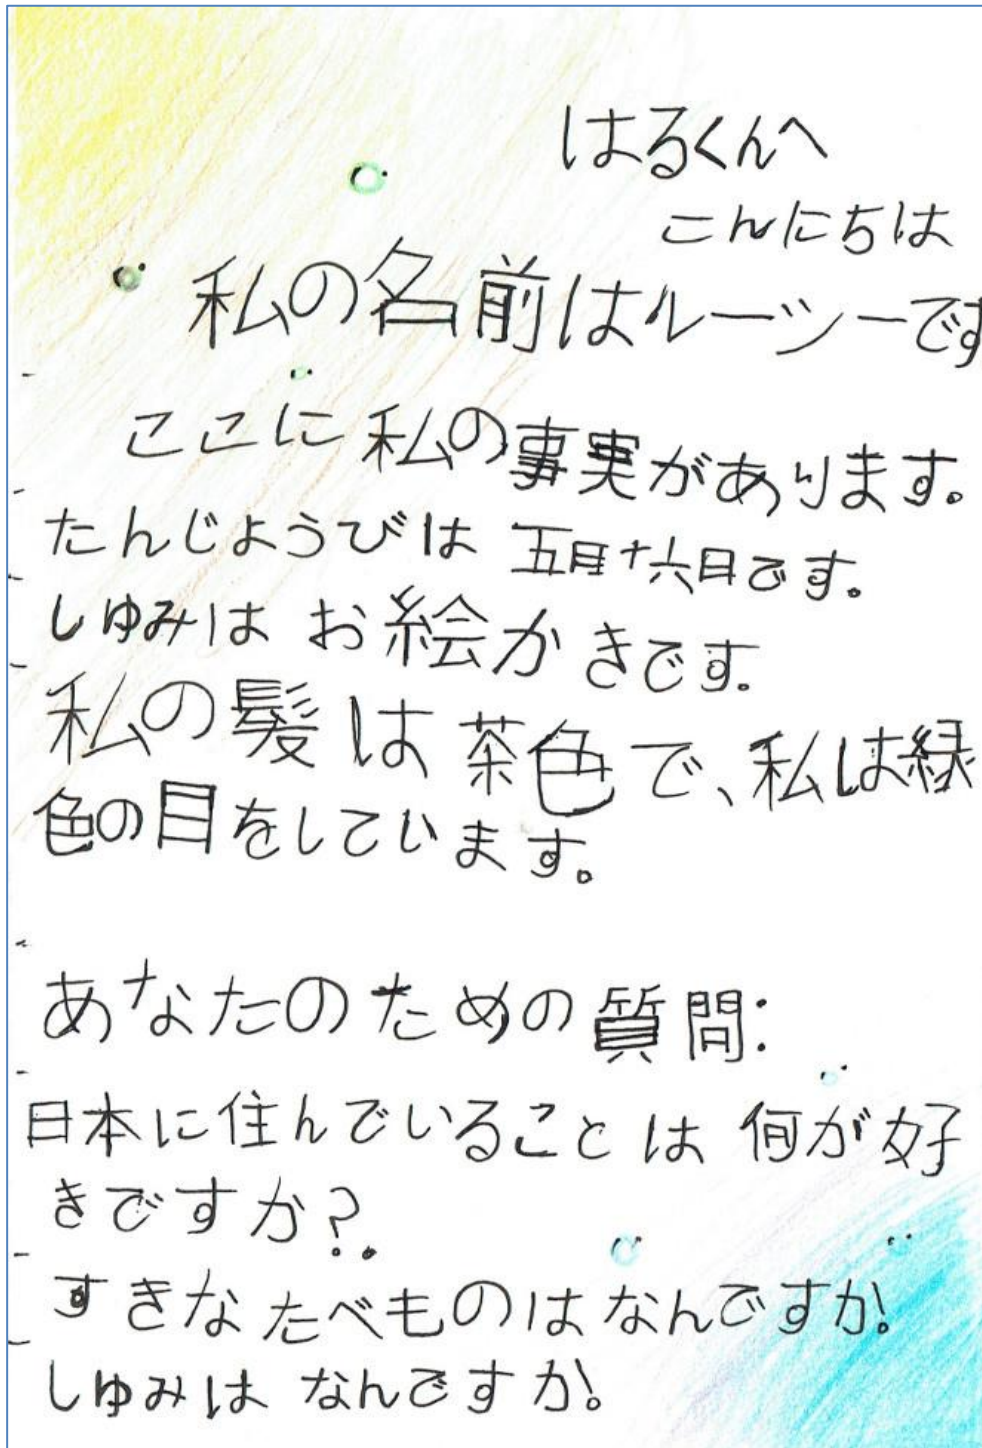 はるくんへ
こんにちは
私の名前はルーシーです
ここに私の事実があります。
たんじょうびは 五月十六日です。
しゆみは お絵かきです。
私の髪は茶色で、私は緑
色の目をしています。
あなたのための質問:
日本に住んでいることは 何が好
きですか?。
すきなたべものはなんですか!
しゅみは なんですか!